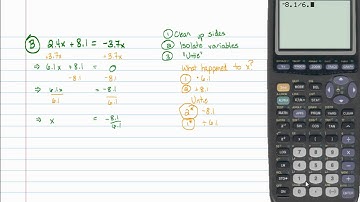 B) 2.4x + 8.1 = -3.7x
+3.7x +3.7x
⇒ 6.1x + 8.1 = 0
-8.1 -8.1
⇒ 6.1x = -8.1
6.1 6.1
⇒ x = -8.1/6.1
① Clean up sides
② Isolate variables
③ "Unto"
What happened to x?
① · 6.1
② + 8.1
Unto
2° -8.1
1° ÷ 6.1
-8.1/6.